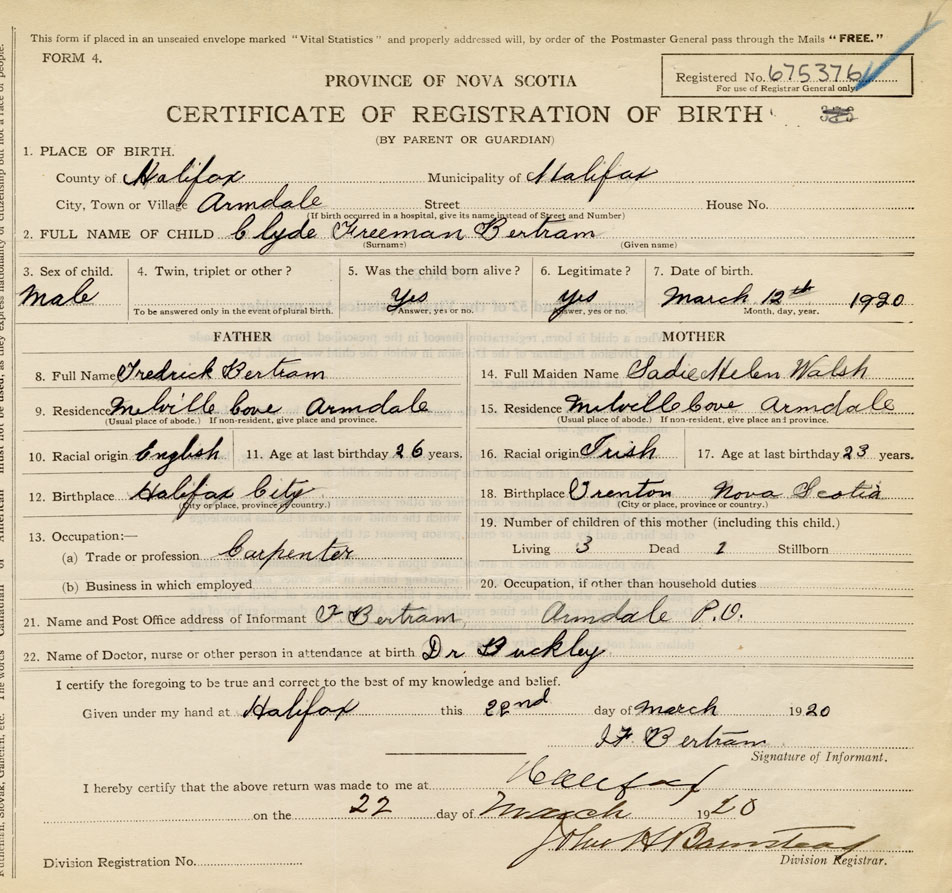 This form if placed in an unsealed envelope marked "Vital Statistics" and properly addressed will, by order of the Postmaster General pass through the Mails "FREE."
FORM 4.
Registered No. 675376
For use of Registrar General only
PROVINCE OF NOVA SCOTIA
CERTIFICATE OF REGISTRATION OF BIRTH
(BY PARENT OR GUARDIAN)
1. PLACE OF BIRTH.
County of Halifax Municipality of Halifax
City, Town or Village Armdale Street House No.
(If birth occurred in a hospital, give its name instead of Street and Number)
2. FULL NAME OF CHILD Clyde Freeman Bertram
(Surname) (Given name)
3. Sex of child. 4. Twin, triplet or other? 5. Was the child born alive? 6. Legitimate? 7. Date of birth.
Male Yes Yes March 12th 1920
To be answered only in the event of plural birth. Answer, yes or no. Answer, yes or no. Month, day, year.
FATHER MOTHER
8. Full Name Fredrick Bertram 14. Full Maiden Name Sadie Helen Walsh
9. Residence Melville Cove Armdale 15. Residence Melville Cove Armdale
(Usual place of abode.) If non-resident, give place and province. (Usual place of abode.) If non-resident, give place and province.
10. Racial origin English 11. Age at last birthday 26 years. 16. Racial origin Irish 17. Age at last birthday 23 years.
12. Birthplace Halifax City 18. Birthplace Trenton Nova Scotia
(City or place, province or country.) (City or place, province or country.)
19. Number of children of this mother (including this child.)
13. Occupation:—
(a) Trade or profession Carpenter Living 3 Dead 1 Stillborn
(b) Business in which employed 20. Occupation, if other than household duties
21. Name and Post Office address of Informant F Bertram, Armdale P.O.
22. Name of Doctor, nurse or other person in attendance at birth Dr Buckley
I certify the foregoing to be true and correct to the best of my knowledge and belief.
Given under my hand at Halifax this 22nd day of March 1920
F Bertram
Signature of Informant.
I hereby certify that the above return was made to me at Halifax
on the 22 day of March 1920
John H Barnstead
Division Registration No. Division Registrar.